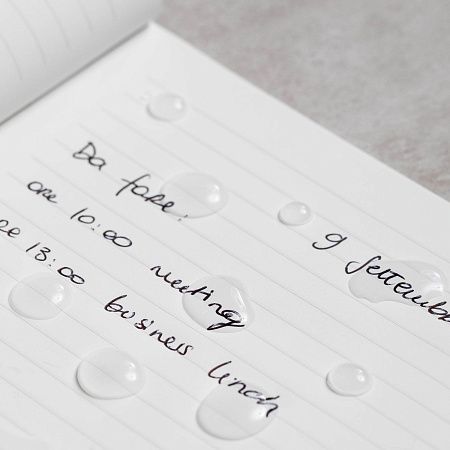 9 Settembre
Da fare:
ore 10:00 meeting
ore 13:00 business lunch